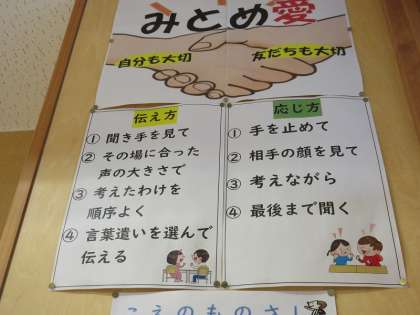 みとめ愛
自分も大切
友だちも大切
伝え方
① 聞き手を見て
② その場に合った
声の大きさで
③ 考えたわけを
順序よく
④ 言葉遣いを選んで
伝える
応じ方
① 手を止めて
② 相手の顔を見て
③ 考えながら
④ 最後まで聞く
こえのものさし